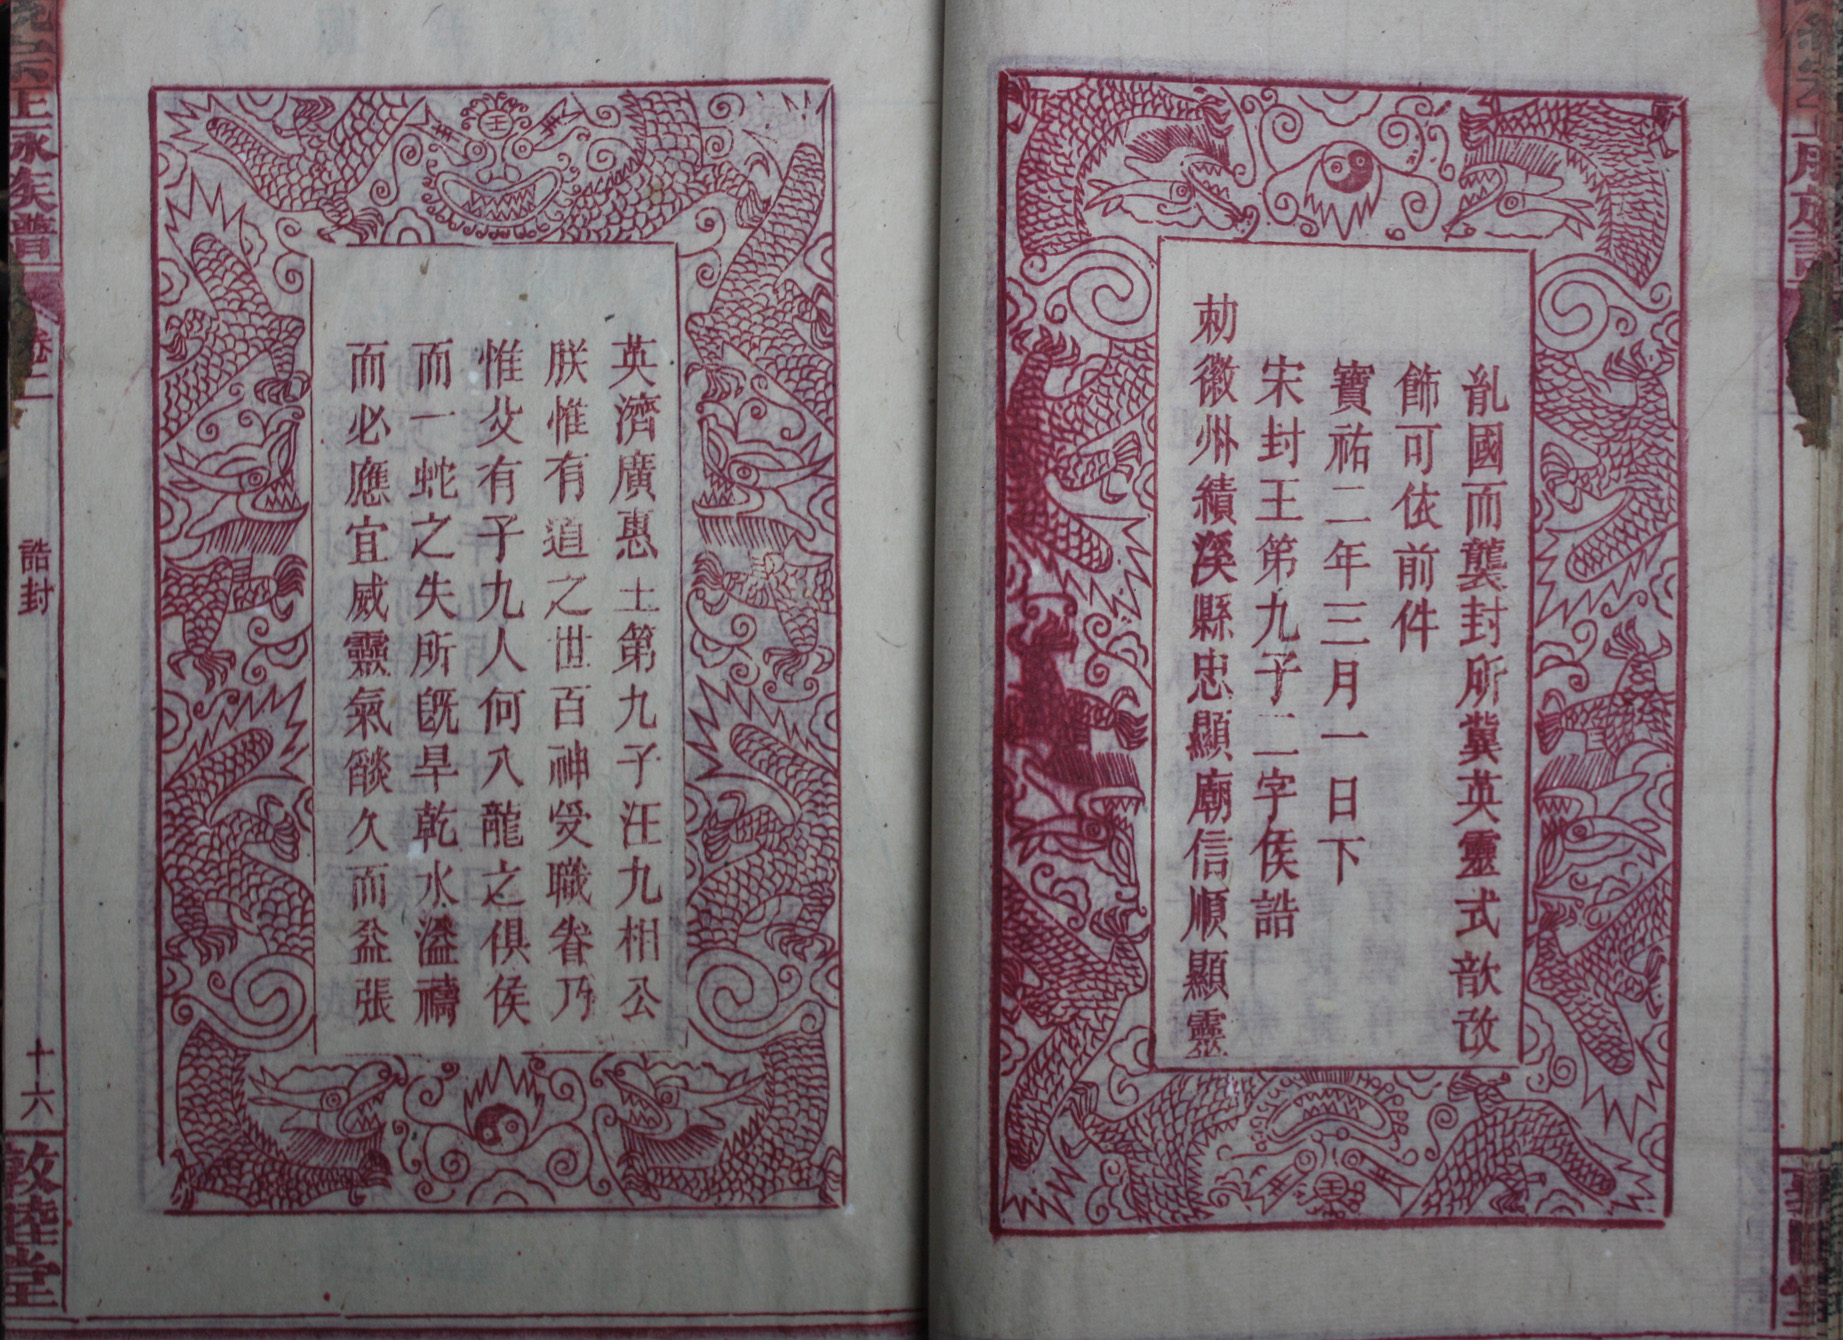 亂國而襲封所冀英靈式歆改
飾可依前件
寶祐二年三月一日下
宋封王第九子二字侯誥
勑徽州績溪縣忠顯廟信順顯靈
英濟廣惠王第九子汪九相公
朕惟有道之世百神受職眷乃
惟父有子九人何八龍之俱侯
而一蛇之失所旣旱乾水溢禱
而必應宜威靈氣燄久而益張
汪氏族譜
卷二
誥封
十六
敦睦堂